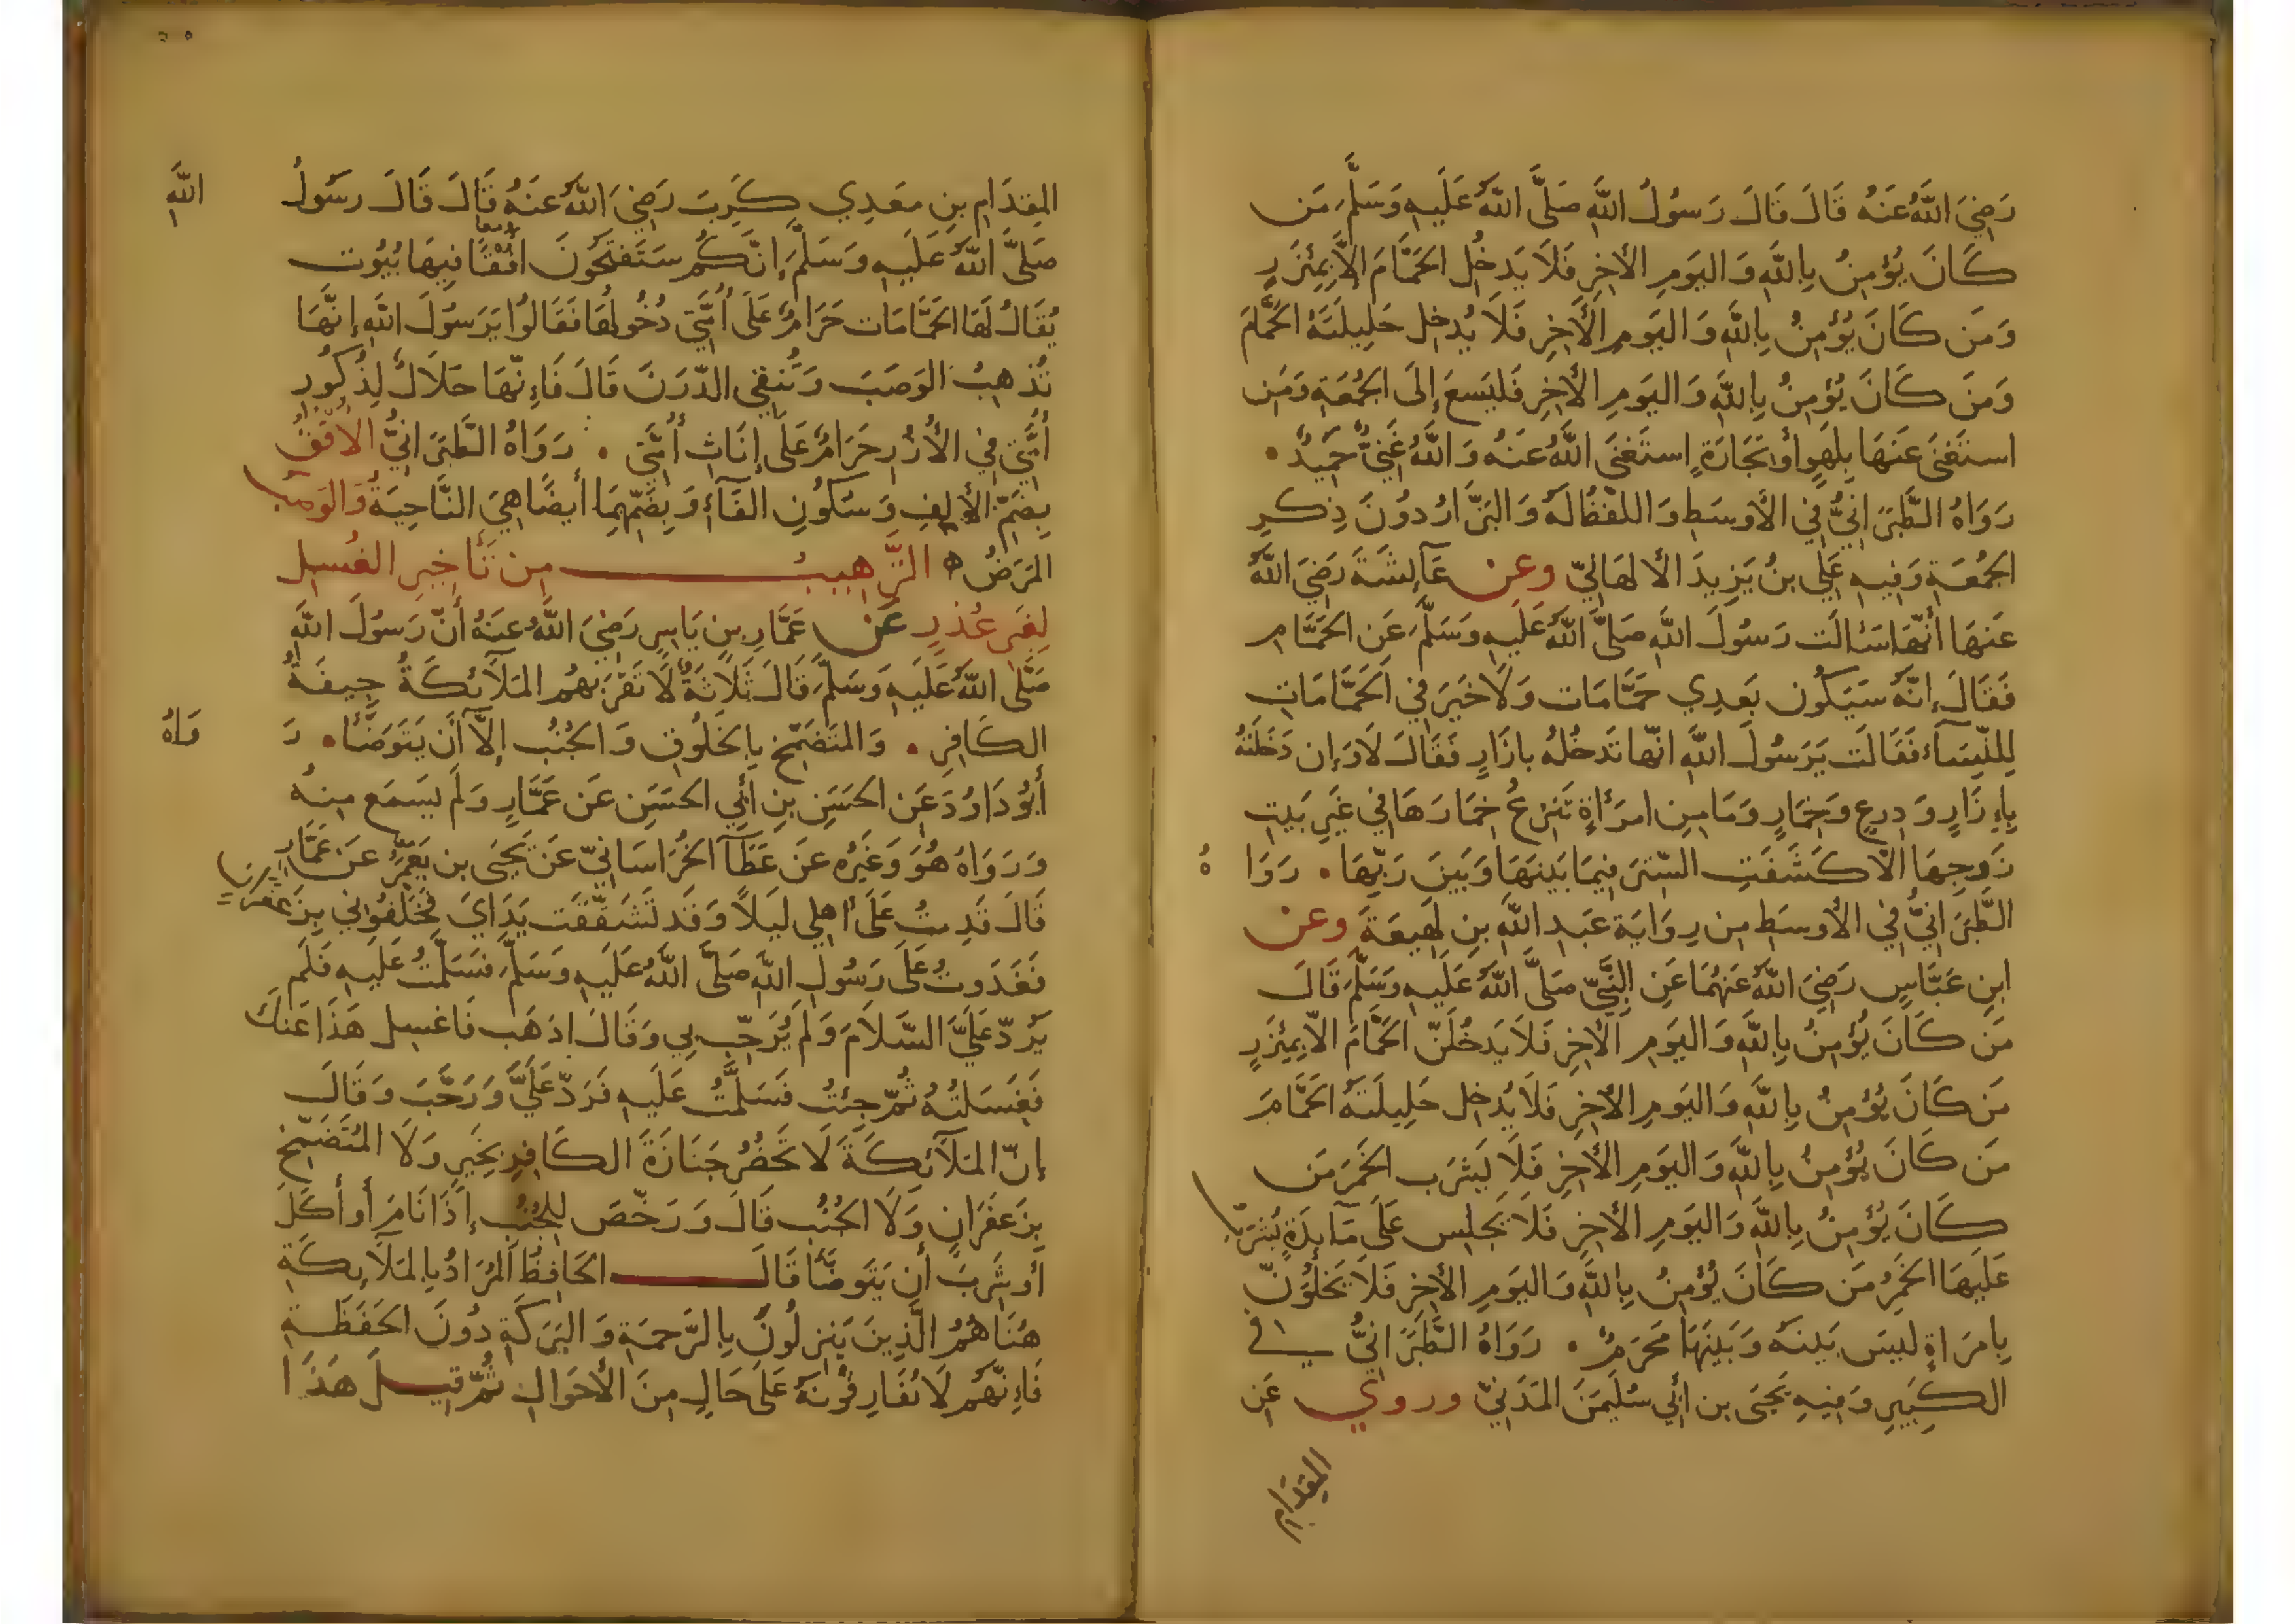 رَضِيَ اللَّهُ عَنهُ قَالَ قَالَ رَسُولُ اللَّهِ صَلَّى اللَّهُ عَلَيهِ وَسَلَّمَ مَن
كَانَ يُؤمِنُ بِاللَّهِ وَاليَومِ الأخِرِ فَلَا يَدخُلِ الحَمَّامَ إلَّا بِمِئزَرٍ
وَمَن كَانَ يُؤمِنُ بِاللَّهِ وَاليَومِ الأخِرِ فَلَا يُدخِل حَلِيلَتَهُ الحَمَّامَ
وَمَن كَانَ يُؤمِنُ بِاللَّهِ وَاليَومِ الأخِرِ فَليَسعَ إلَى الجُمُعَةِ وَمَنِ
استَغنَى عَنهَا بِلَهوٍ أو تِجَارَةٍ استَغنَى اللَّهُ عَنهُ وَاللَّهُ غَنِيٌّ حَمِيدٌ •
رَوَاهُ الطَّبَرَانِيُّ فِي الأوسَطِ وَاللفظُ لَهُ وَالبَزَّارُ دُونَ ذِكرِ
الجُمُعَةِ وَفِيهِ عَلِي بنُ يَزِيدَ الألهَانِيّ وعن عَآئِشَةَ رَضِيَ اللَّهُ
عَنهَا أنَّهَا سَألَت رَسُولَ اللَّهِ صَلَّى اللَّهُ عَلَيهِ وَسَلَّمَ عَنِ الحَمَّامِ
فَقَالَ إنَّهُ سَيَكُون بَعدِي حَمَّامَات وَلَا خَيرَ فِي الحَمَّامَاتِ
لِلنِّسَآءِ فَقَالَت يَرَسُولَ اللَّهِ انَّها تَدخُلُهُ بازَارٍ فَقَالَ لَا وَإن دَخَلَتهُ
بِإِزَارٍ وَدِرعٍ وَخِمَارٍ وَمَا مِنِ امرَأةٍ تَنزِعُ خِمَارَهَا فِي غَيرِ بَيتِ
زَوجِهَا الَّا كَشَفَتِ السِّترَ فِيمَا بَينَهَا وَبَينَ رَبِّهَا • رَوَا هُ
الطَّبَرَانِيُّ فِي الأوسَطِ مِن رِوَايَةِ عَبدِ اللَّهِ بنِ لَهِيعَةَ وعن
ابنِ عَبَّاسٍ رَضِيَ اللَّهُ عَنهُمَا عَنِ النَّبِيِّ صَلَّى اللَّهُ عَلَيهِ وَسَلَّمَ قَالَ
مَن كَانَ يُؤمِنُ بِاللَّهِ وَاليَومِ الأخِرِ فَلَا يَدخُلَنّ الحَمَّامَ الّا بِمِئزَرٍ
مَن كَانَ يُؤمِنُ بِاللَّهِ وَاليَومِ الأخِرِ فَلَا يُدخِل حَلِيلَتَهُ الحَمَّامَ
مَن كَانَ يُؤمِنُ بِاللَّهِ وَاليَومِ الأخِرِ فَلَا يَشرَب الخَمرَ مَن
كَانَ يُؤمِنُ بِاللَّهِ وَاليَومِ الأخِرِ فَلَا يَجلِس عَلَى مَآئِدَةٍ يُشرَبُ
عَلَيهَا الخَمرُ مَن كَانَ يُؤمِنُ بِاللَّهِ وَاليَومِ الأخِرِ فَلَا يَخلُوَنّ
بِامرَاةٍ لَيسَ بَينَهُ وَبَينَهَا مَحرَمٌ • رَوَاهُ الطَّبَرَانِيُّ في
الكَبِيرِ وَفِيهِ يَحيَى بن أبِي سُلَيمَنَ المَدَنِيّ وروي عَنِ
المِقدَامِ
المِقدَامِ بنِ مَعدِي كَرِبَ رَضِيَ اللَّهُ عَنهُ قَالَ قَالَ رسَولُ اللَّهِ
صَلَّى اللَّهُ عَلَيهِ وَسَلَّمَ إنَّكُم سَتَفتَحُونَ أفُقًا فِيهَا بُيُوت
يُقَالُ لَهَا الحَمَّامَات حَرَامٌ عَلَى أُمَّتِي دُخُولُهَا فَقَالُوا يَرَسُولَ اللَّهِ إنَّهَا
تُذهِبُ الوَصَبَ وَتُنقِي الدّرَنَ قَالَ فَإِنّهَا حَلَالٌ لِذُكُورِ
أُمَّتِي فِي الأُزُرِ حَرَامٌ عَلَى إنَاثِ أُمَّتِي • رَوَاهُ الطَّبَرَانِيُّ الأفُقُ
بِضَمِّ الألِفِ وَسُكُونِ الفَآءِ وَبِضَمِّهِمَا أيضًا هِيَ النَّاحِيَةُ وَالوَصَبُ
المَرَضُ ه التَّرهِيبُ مِن تَأخِيرِ الغُسلِ
لِغَيرِ عُذرٍ عَن عَمَّارِ بنِ يَاسِرٍ رَضِيَ اللَّهُ عَنهُ أنّ رَسُولَ اللَّهِ
صَلَّى اللَّهُ عَلَيهِ وَسَلَّمَ قَالَ ثَلَاثَةٌ لَا تَقرَبُهُمُ المَلَآئِكَةُ جِيفَةُ
الكَافِرِ • وَالمُتَضَمِّخُ بِالخَلُوقِ وَالجُنُب إلَّا أن يَتَوَضَّأ • رَ وَاهُ
أبُو دَاوُدَ عَنِ الحَسَنِ بنِ أبِي الحَسَنِ عَن عَمَّارٍ وَلَم يَسمَع مِنهُ
وَرَوَاهُ هُوَ وَغَيرُه عَن عَطَآ الخُرَاسَانِيّ عَن يَحيَى بن يَعمَرَ عَن عَمَّارٍ
قَالَ قَدِمتُ عَلَى أهلِي لَيلًا وَقَد تَشَقَّقَت يَدَايَ فَخَلَّقُونِي بِزَعفَرَانٍ
فَغَدَوتُ عَلَى رَسُولِ اللَّهِ صَلَّى اللَّهُ عَلَيهِ وَسَلَّمَ فَسَلَّمتُ عَلَيهِ فَلَم
يَرُدّ عَلَيَّ السَّلَامَ وَلَم يُرَحِّب بِي وَقَالَ اذهَب فَاغسِل هَذَا عَنكَ
فَغَسَلتُهُ ثُمّ جِئتُ فَسَلَّمتُ عَلَيهِ فَرَدّ عَلَيَّ وَرَحَّبَ وَقَالَ
إنّ المَلَآئِكَةَ لَا تَحضُرُ جَنَازَةَ الكَافِرِ بِخَيرٍ وَلَا المُتَضَمِّخَ
بِزَعفَرَانٍ وَلَا الجُنُب قَالَ وَرَخّصَ لِلجُنُبِ إذَا نَامَ أو أكَلَ
أو شَرِبَ أن يَتَوَضَّأ قَالَ الحَافِظُ المُرَادُ بِالمَلَآئِكَةِ
هُنَا هُمُ الَّذِينَ يَنزِلُونَ بِالرَّحمَةِ وَالبَرَكَةِ دُونَ الحَفَظَةِ
فَإِنّهُم لَا يُفَارِقُونَهُ عَلَى حَالٍ مِنَ الأَحوَالِ ثُمّ قِيلَ هَذَا